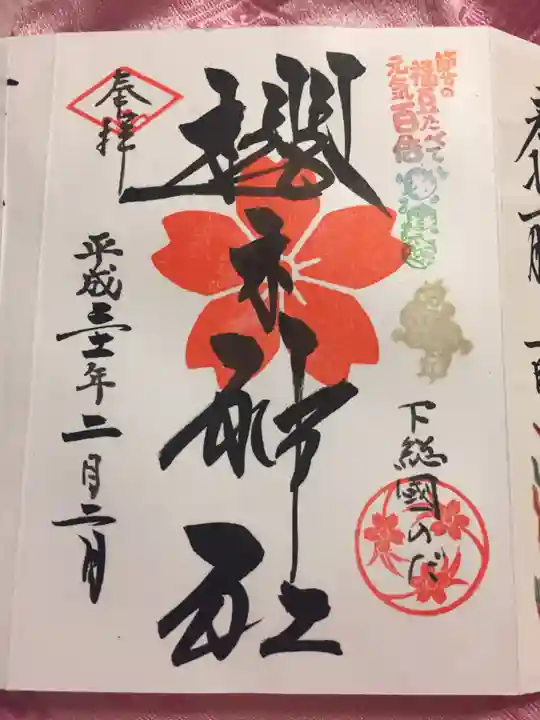 節分の
福豆たべて
元気百倍
下総國のだ
櫻木神社
奉拝
平成三十一年二月二日